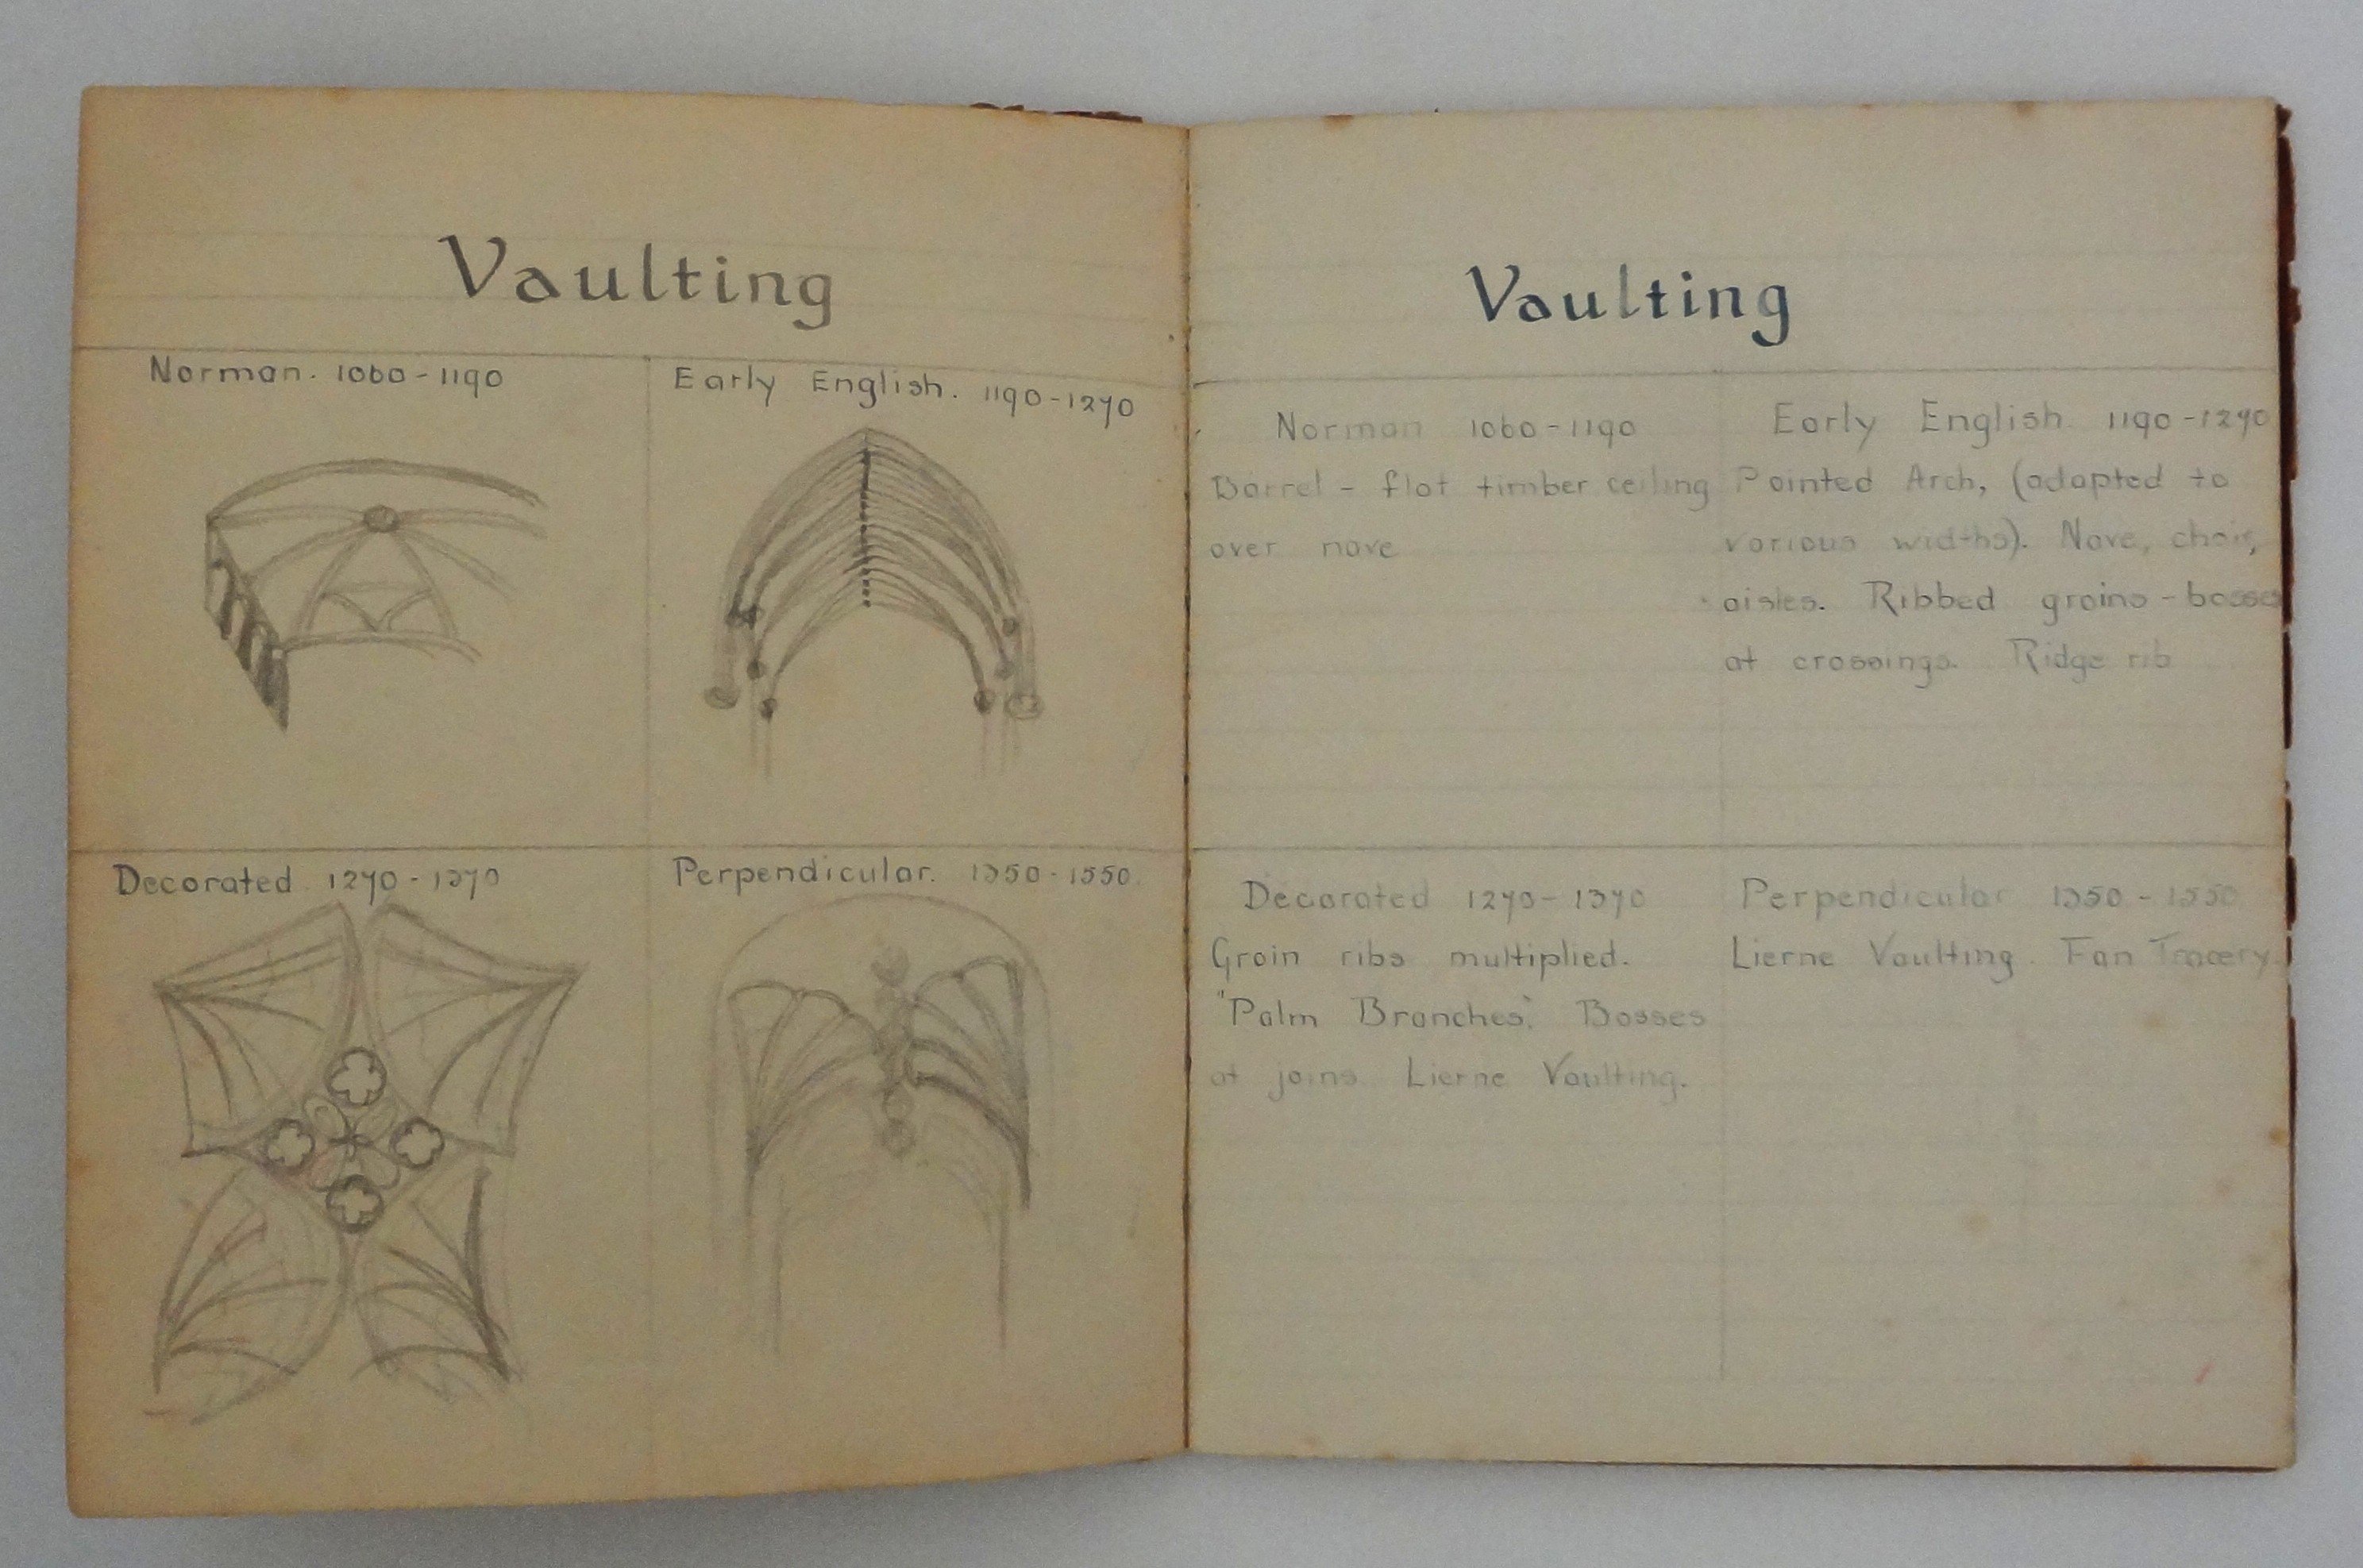 Vaulting
Norman. 1060-1190
Early English. 1190-1270
Decorated 1270-1370
Perpendicular. 1350-1550
Vaulting
Norman 1060-1190
Barrel - flat timber ceiling
over nave
Early English. 1190-1270
Pointed Arch, (adapted to
various widths). Nave, choir,
aisles. Ribbed groins - bosses
at crossings. Ridge rib
Decorated 1270-1370
Groin ribs multiplied.
"Palm Branches". Bosses
at joins Lierne Vaulting.
Perpendicular 1350-1550
Lierne Vaulting. Fan Tracery.